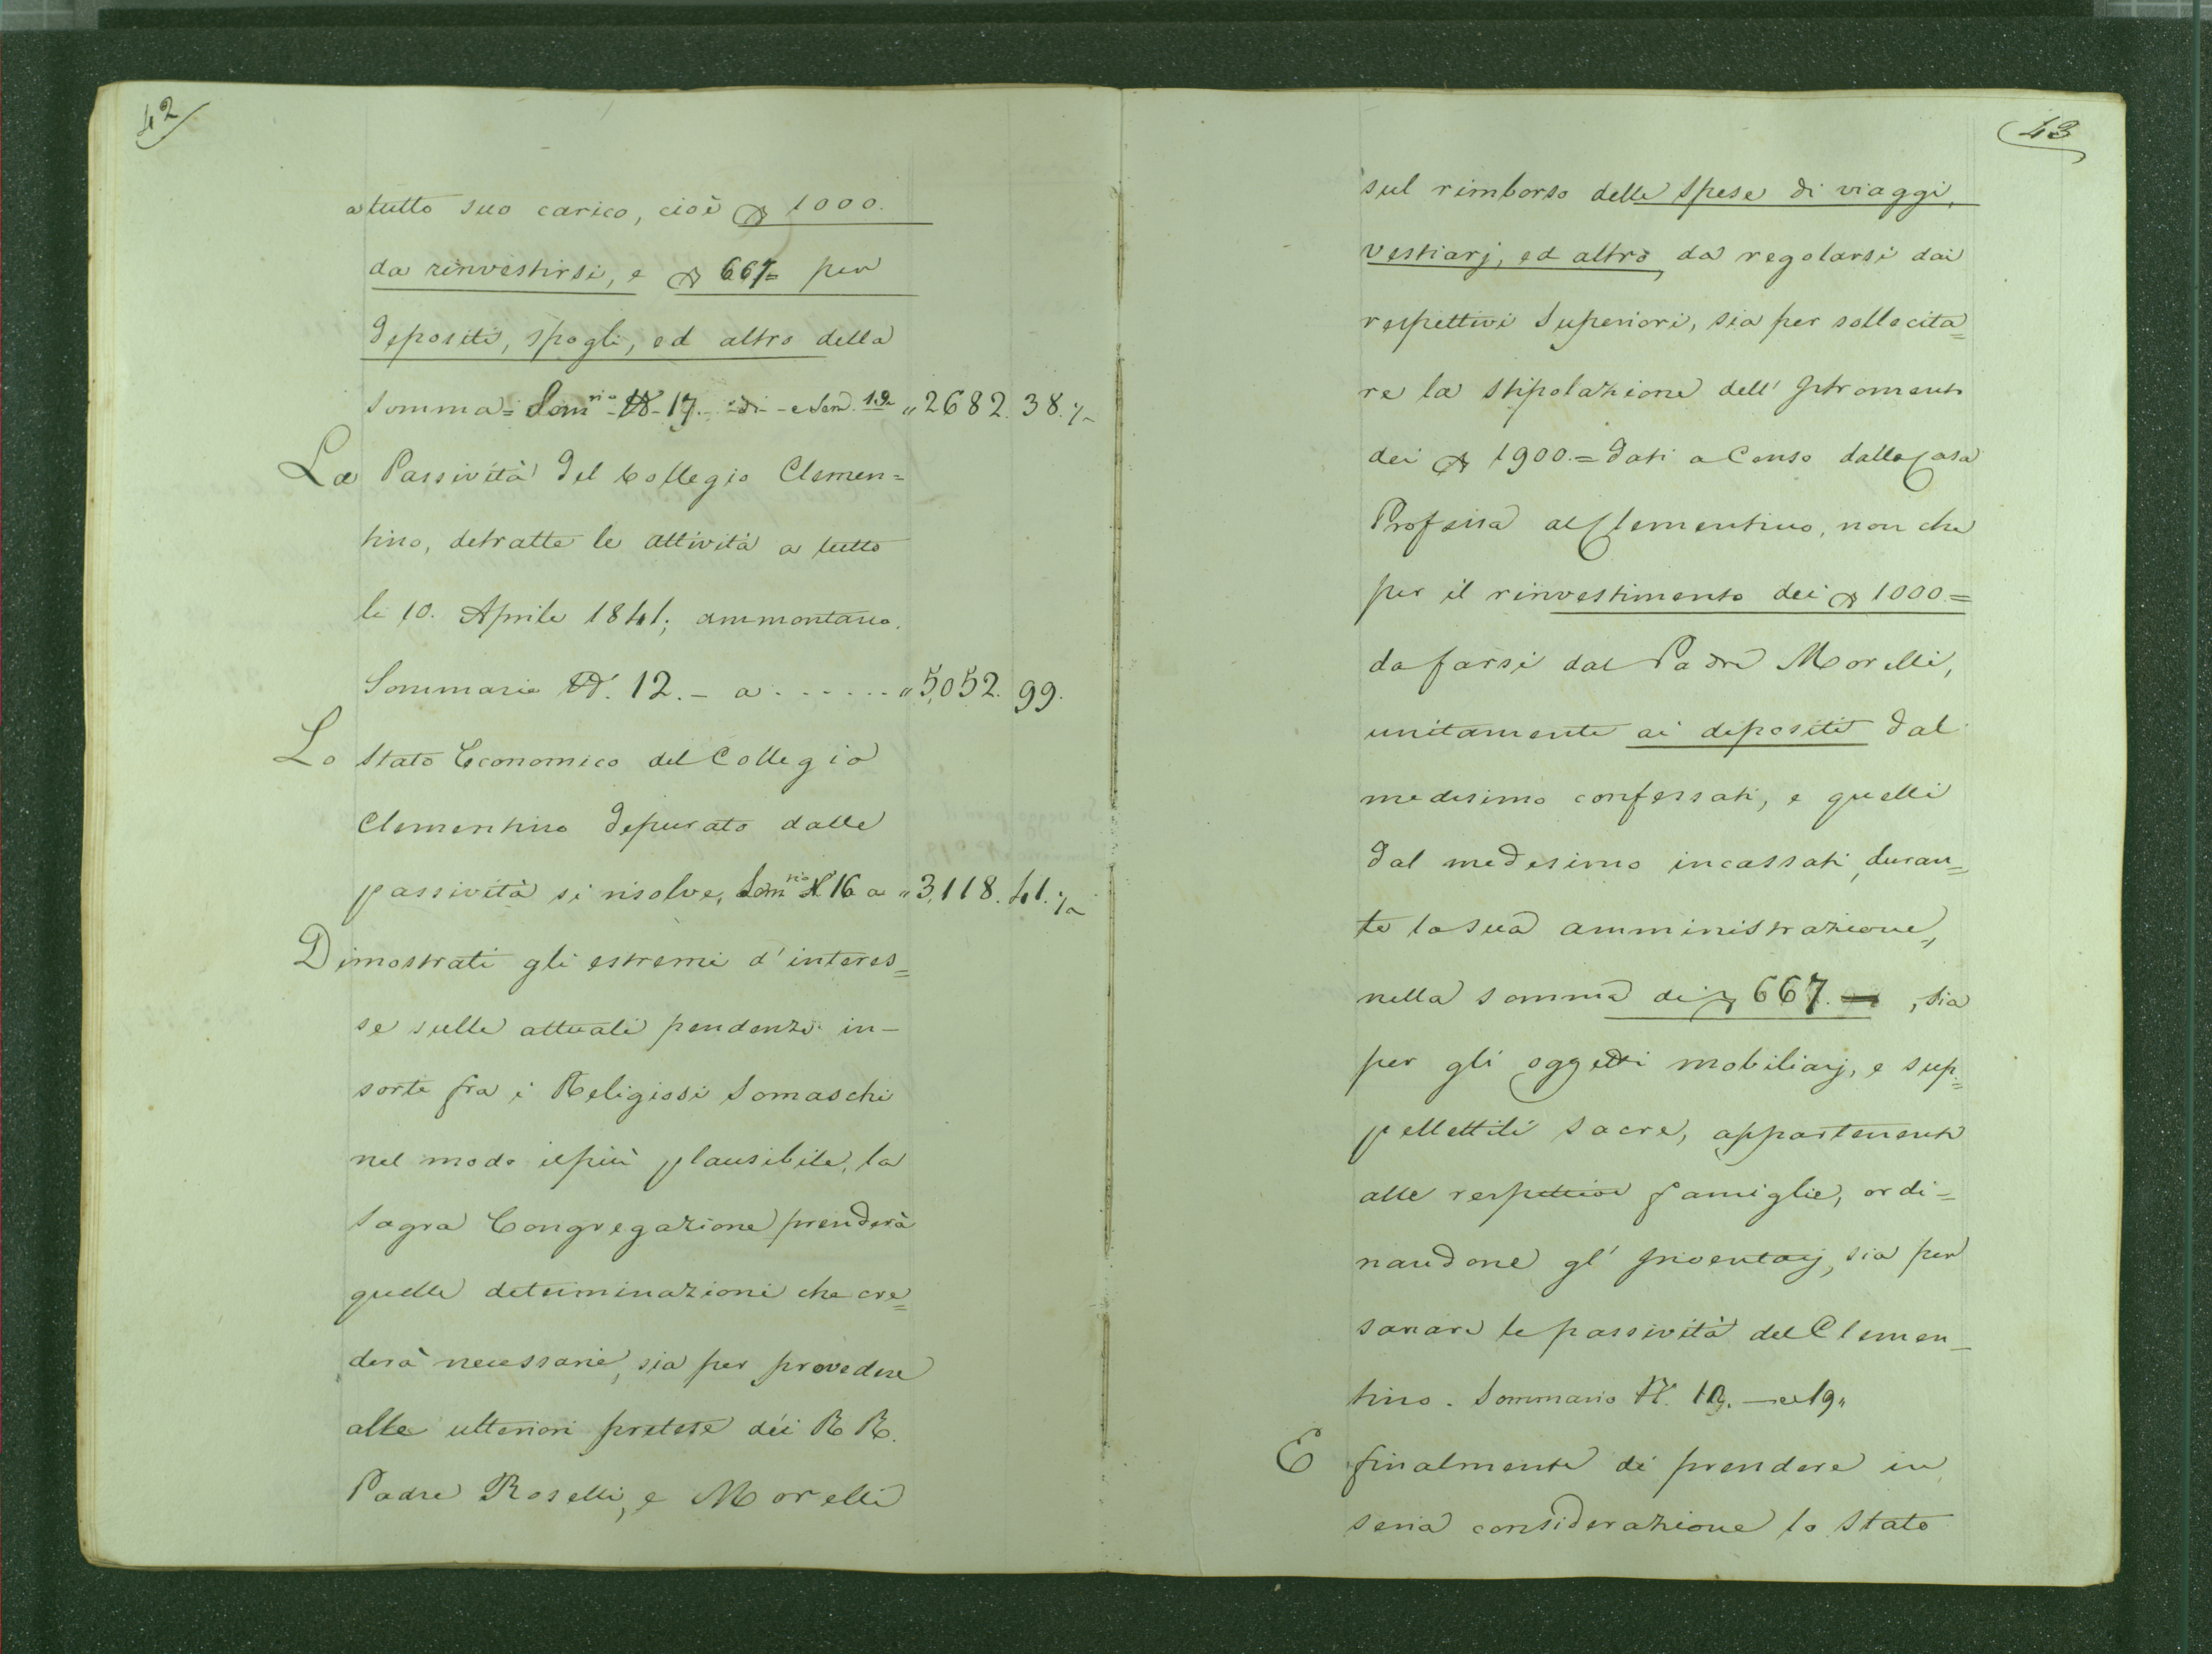 42
a tutto suo carico, cioè 1000.
da rinvestirsi, e 667= per
depositi, spogli, ed altro della
somma= Som.rio N. 17. e Som. 19 „ 2682. 38.½
Le Passività del Collegio Clemen=
tino, detratte le attività a tutto
li 10. Aprile 1841; ammontano.
Sommario N. 12. - a - - - - - - „ 5,052. 99.
Lo Stato Economico del Collegio
Clementino depurato dalle
passività si risolve, Som.rio N. 16 a „ 3,118. 41.½
Dimostrati gli estremi d'interes=
se sulle attuali pendenze in-
sorte fra i Religiosi Somaschi
nel modo il più plausibile, la
Sagra Congregazione prenderà
quelle determinazioni che cre=
derà necessarie, sia per provedere
alle ulteriori pretese dei RR.
Padre Roselli, e Morelli
43
sul rimborso delle spese di viaggi,
vestiarj, ed altro, da regolarsi dai
respettivi Superiori, sia per sollecita=
re la stipolazione dell' Istromento
dei 1900.= dati a Censo dalla Casa
Professa al Clementino, non che
per il rinvestimento dei 1000.=
da farsi dal Padre Morelli,
unitamente ai depositi dal
medesimo confessati, e quelli
dal medesimo incassati, duran=
te la sua amministrazione,
nella somma di 667. , sia
per gli oggetti mobiliarj, e sup=
pellettili sacre, appartenenti
alle respettive famiglie, ordi-
nandone gl' Inventarj, sia per
sanare le passività del Clemen-
tino. Sommario N. - e 19„
E finalmente di prendere in
seria considerazione lo Stato